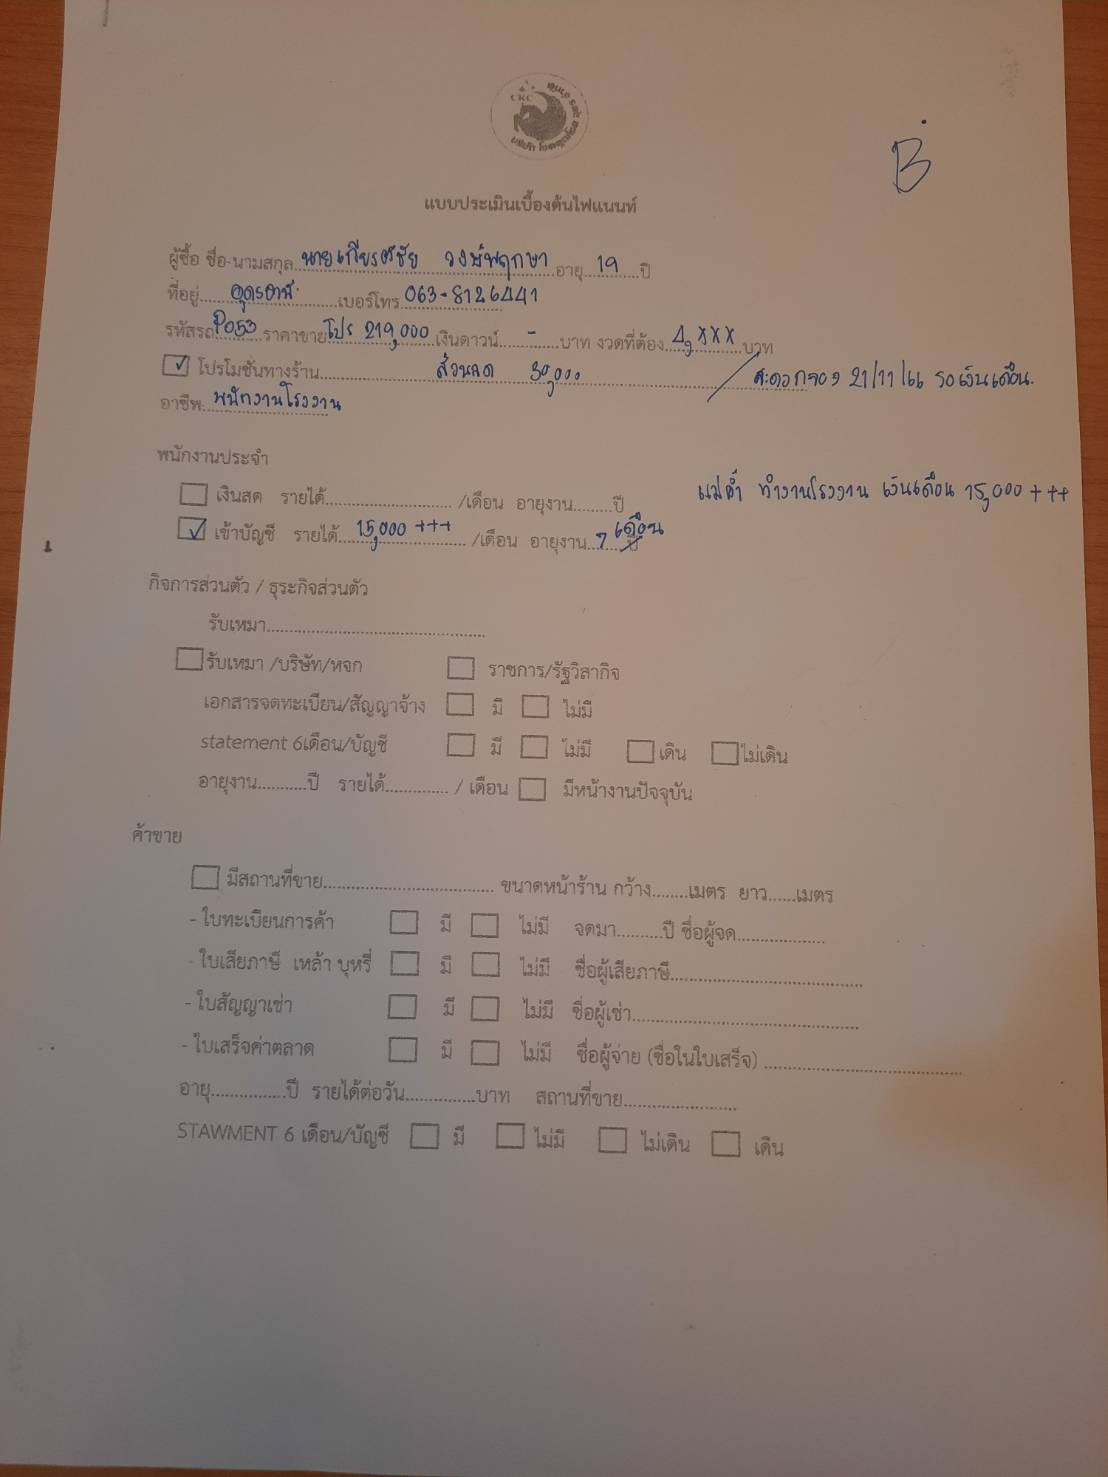 CKC
B
แบบประเมินเบื้องต้นไฟแนนท์
ผู้ซื้อ ชื่อ-นามสกุล นายเกียรติชัย วงษ์พฤกษา อายุ 19 ปี
ที่อยู่ อุดรธานี เบอร์โทร 063-8126441
รหัสรถ P053 ราคาขาย โปร 219,000 เงินดาวน์ - บาท งวดที่ต้อง 4,xxx บาท
โปรโมชั่นทางร้าน ส่วนลด 30,000 / สะดวกจอง 21/11/66 รอเงินเดือน.
อาชีพ พนักงานโรงงาน
พนักงานประจำ
เงินสด รายได้ /เดือน อายุงาน ปี แม่ค้ำ ทำงานโรงงาน เงินเดือน 15,000 +++
เข้าบัญชี รายได้ 15,000 +++ /เดือน อายุงาน 7 เดือน
กิจการส่วนตัว / ธุระกิจส่วนตัว
รับเหมา
รับเหมา /บริษัท/หจก ราชการ/รัฐวิสากิจ
เอกสารจดทะเบียน/สัญญาจ้าง มี ไม่มี
statement 6เดือน/บัญชี มี ไม่มี เดิน ไม่เดิน
อายุงาน ปี รายได้ / เดือน มีหน้างานปัจจุบัน
ค้าขาย
มีสถานที่ขาย ขนาดหน้าร้าน กว้าง เมตร ยาว เมตร
- ใบทะเบียนการค้า มี ไม่มี จดมา ปี ชื่อผู้จด
- ใบเสียภาษี เหล้า บุหรี่ มี ไม่มี ชื่อผู้เสียภาษี
- ใบสัญญาเช่า มี ไม่มี ชื่อผู้เช่า
- ใบเสร็จค่าตลาด มี ไม่มี ชื่อผู้จ่าย (ชื่อในใบเสร็จ)
อายุ ปี รายได้ต่อวัน บาท สถานที่ขาย
STAWMENT 6 เดือน/บัญชี มี ไม่มี ไม่เดิน เดิน